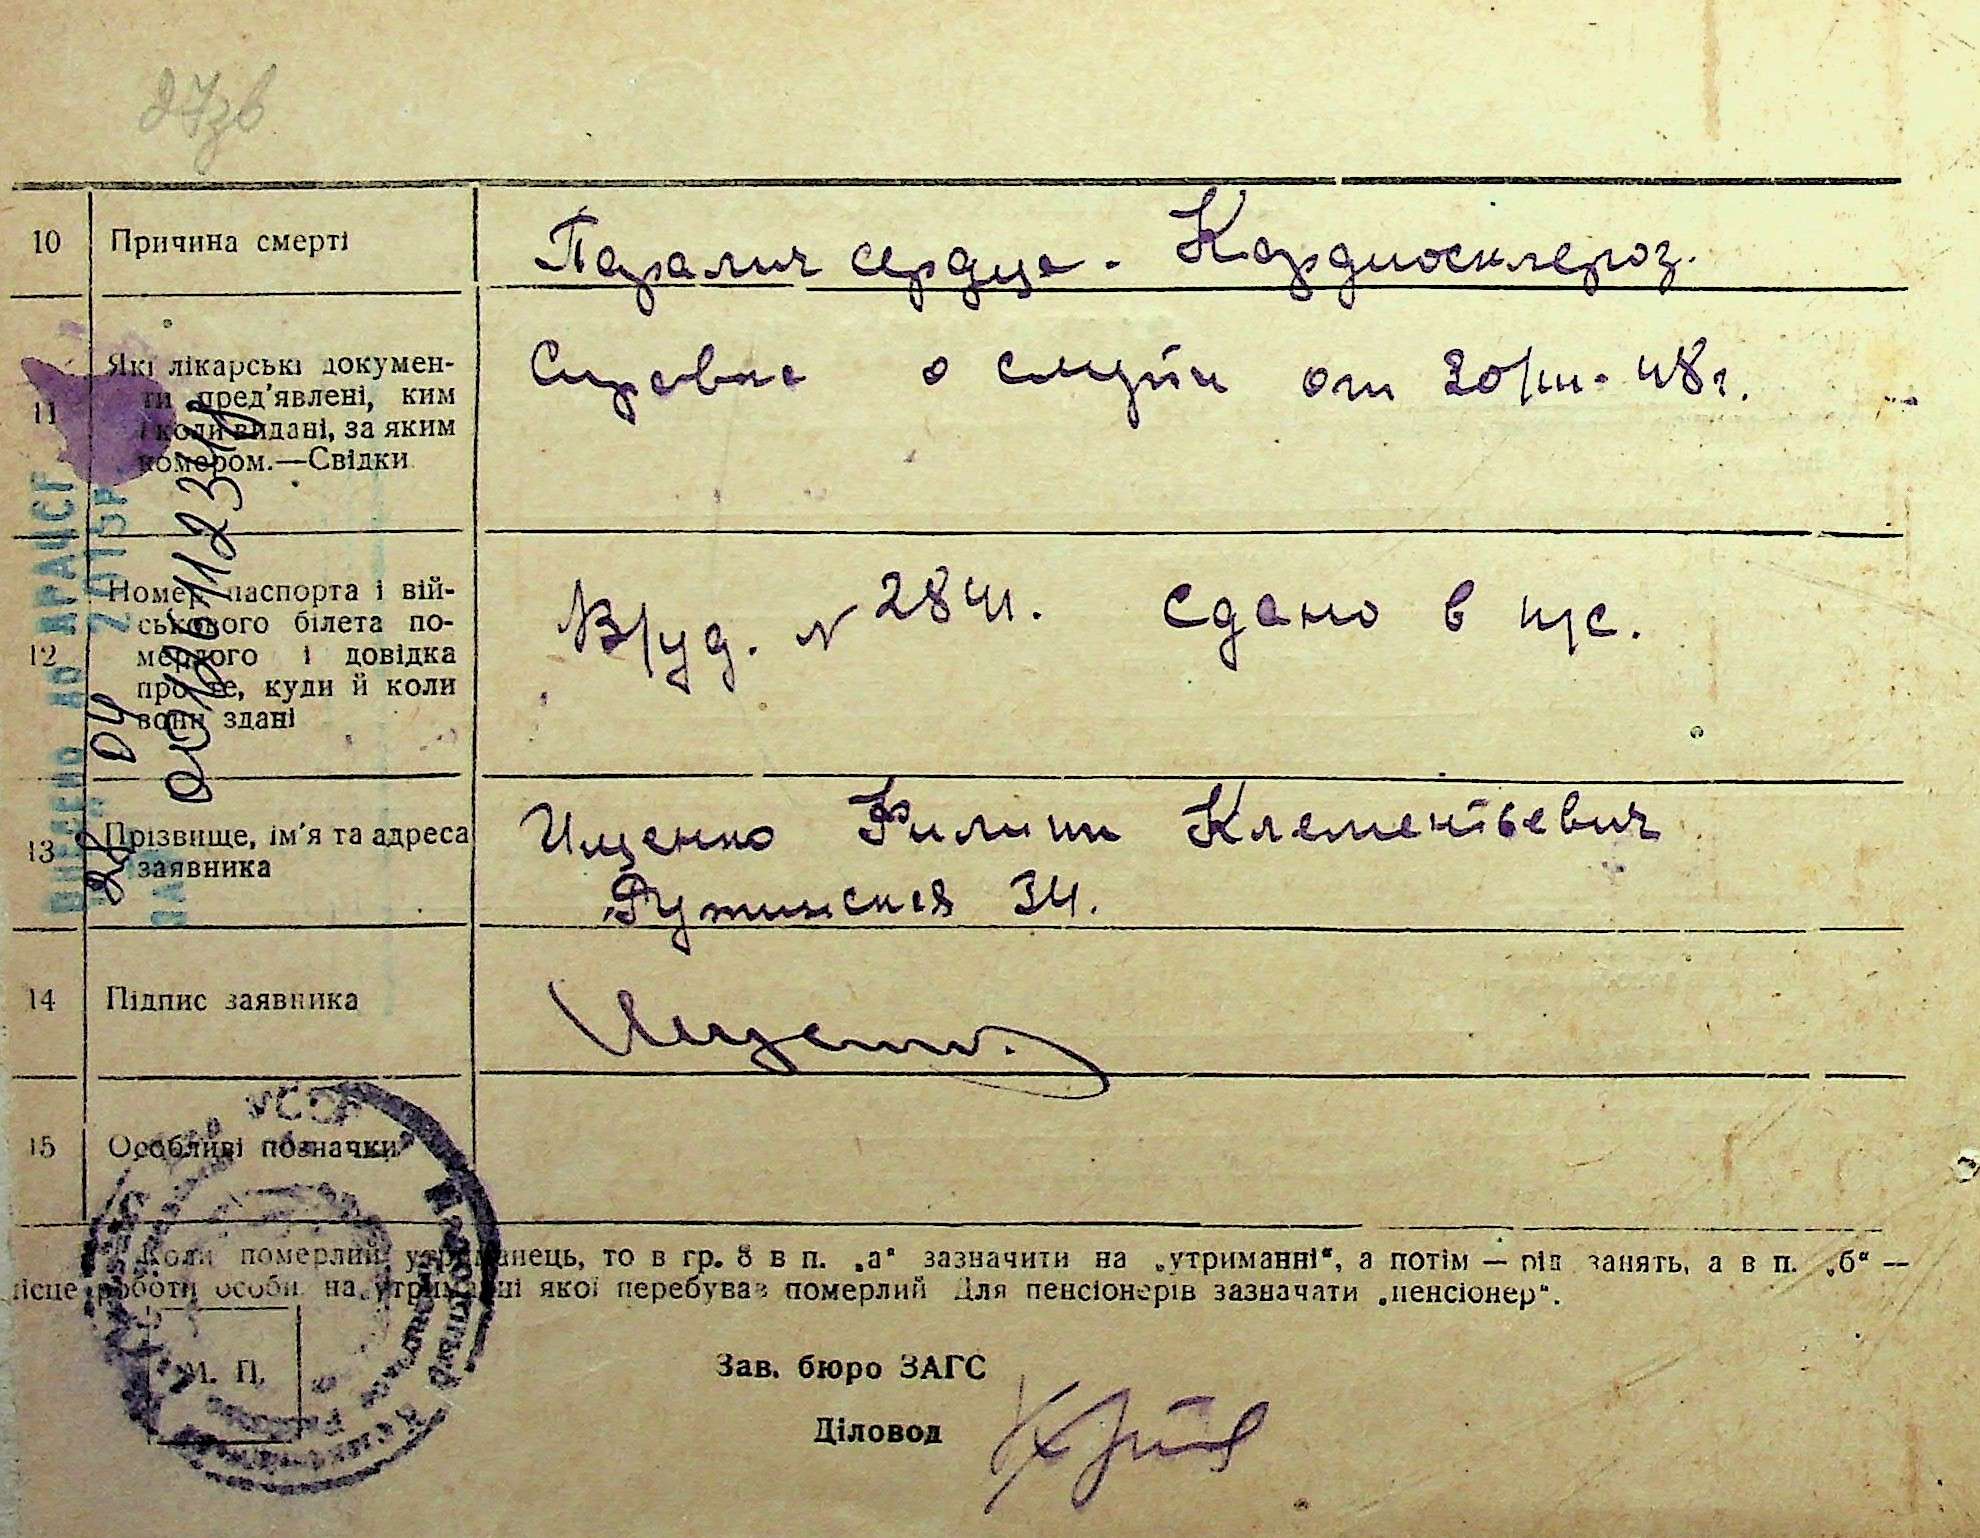 27зв
10 Причина смерті Паралич сердца. Кардиосклероз.
11 Які лікарські докумен-
ти пред'явлені, ким
і коли видані, за яким
номером.—Свідки
Справка о смерти от 30/VIII-48г.
12 Номер паспорта і вій-
ськового білета по-
мерлого і довідка
про те, куди й коли
вони здані
В/уд. N 2841. сдано в п/с.
13 Прізвище, ім'я та адреса
заявника
Ищенко Филипп Клементьевич
Ружинская 34.
14 Підпис заявника Ищенко.
15 Особливі позначки
Коли померлий утриманець, то в гр. 8 в п. „а“ зазначити на „утриманні“, а потім — рід занять, а в п. „б“ —
місце роботи особи, на утриманні якої перебував померлий Для пенсіонерів зазначати „пенсіонер“.
М. П.
Зав. бюро ЗАГС
Діловод
ВНЕСЕНО ДО ДРАЦСГ